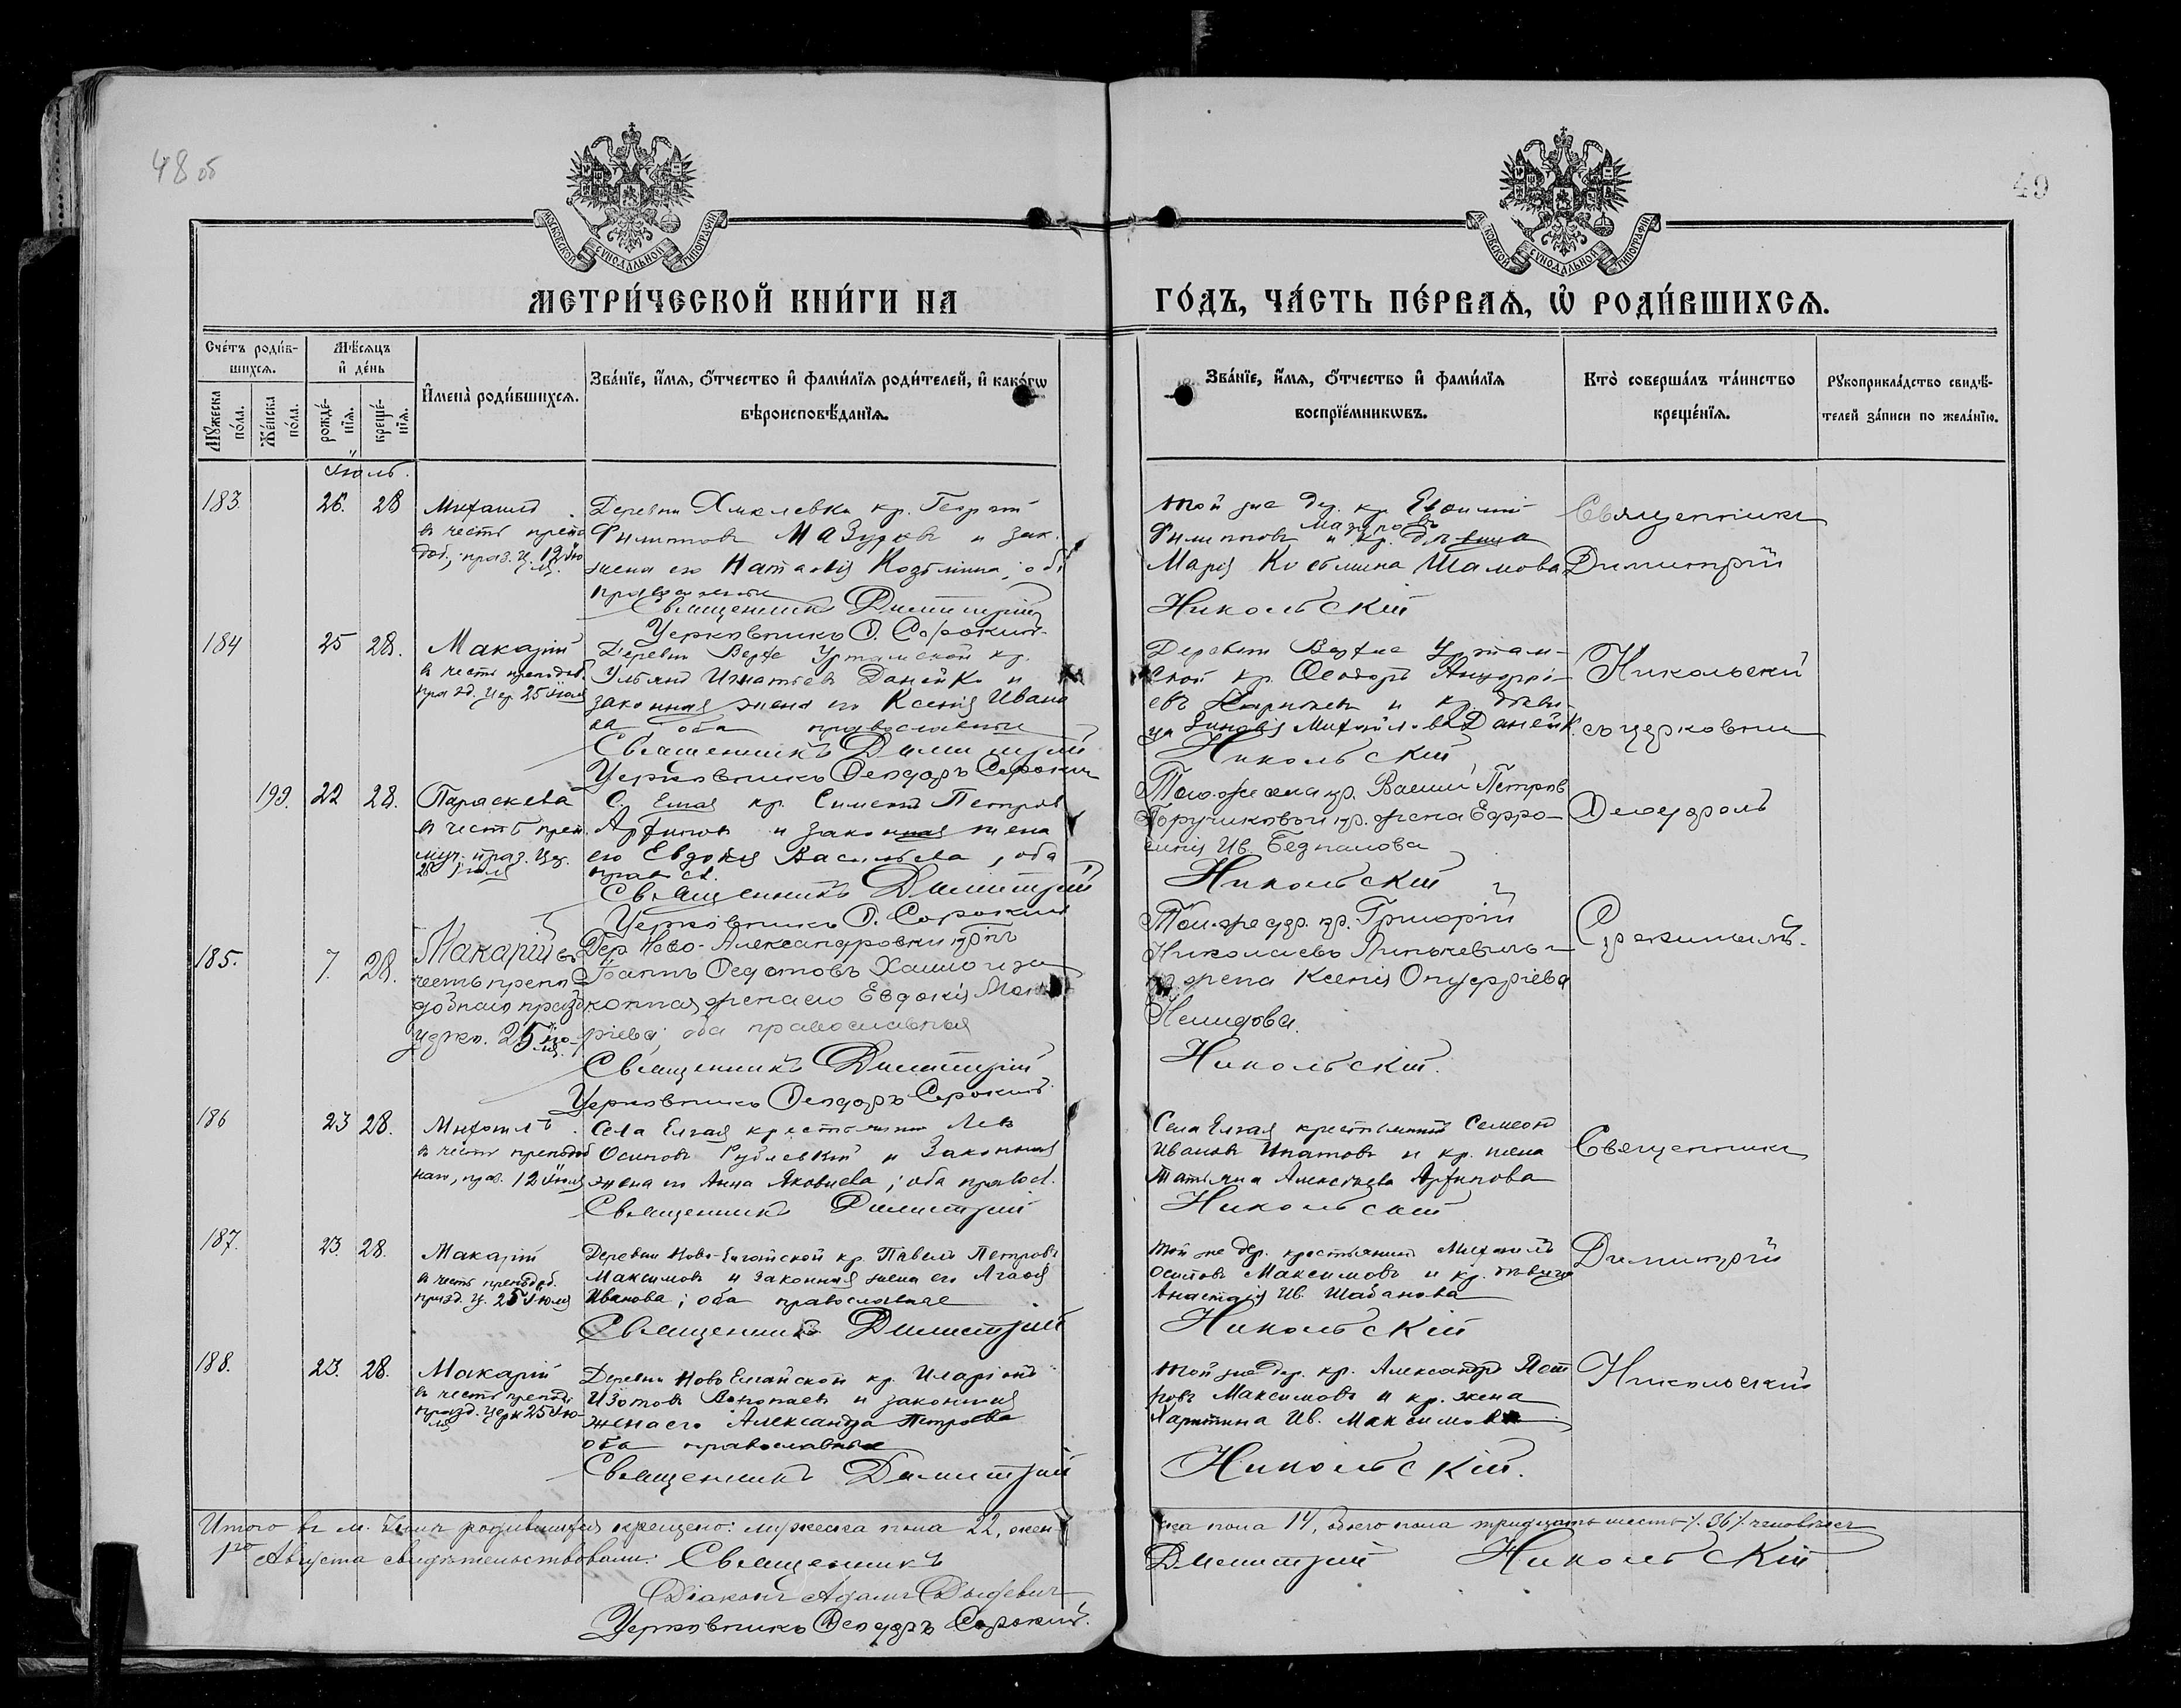 48 об
49
МОСКОВСКОЙ СѴНОДАЛЬНОЙ ТИПОГРАФІИ
МЕТРИ́ЧЕСКОЙ КНИ́ГИ НА
ГО́ДЪ, ЧА́СТЬ ПЕ́РВАѦ, Ѡ РОДИ́ВШИХСѦ.
Сче́тъ роди́в-
шихсѧ.
Мѣ́сѧцъ
и де́нь
Мꙋ́жеска
по́ла.
Же́нска
по́ла.
рожде́-
нїѧ.
креще́-
нїѧ.
И҆мена̀ роди́вшихсѧ.
Зва́нїе, и҆́мѧ, ѻ҆́тчество и҆ фами́лїѧ роди́телей, и҆ како́гѡ
вѣроисповѣ́данїѧ.
Зва́нїе, и҆́мѧ, ѻ҆́тчество и҆ фами́лїѧ
воспрїе́мникѡвъ.
Кто̀ соверша́лъ та́инство
креще́нїѧ.
Рꙋкоприкла́дство свидѣ́-
телей за́писи по жела́нїю.
Іюль.
183. 26. 28 Михаилъ
въ честь препо
доб., праз. ц. 12 Ію
ля.
Деревни Хмелевки кр. Георгій
Филипповъ Мазуровъ и зак.
жена его Наталія Козьмина; оба
православные
Священникъ Димитрій
Церковникъ Ѳ. Сорокинъ
Той же дер. кр. Евфимій
Филипповъ Мазуровъ и кр. дѣвица
Марія Козьмина Шамова
Никольскій
Священникъ
Димитрій
184 25 28. Макарій
въ честь преподоб.
празд. цер. 25 Іюля
Деревни Верхе Уртамской кр.
Ульянъ Игнатьевъ Данейко и
законная жена его Ксенія Ивано
ва оба православные
Священникъ Димитрій
Церковникъ Ѳеодоръ Сорокинъ
Деревни Верхне Уртам-
ской кр. Ѳеодоръ
и кр. дѣви-
ца Зиновія Михайлова Данейк.
Никольскій
Никольскій
съ церковник.
199. 22 28. Параскева
въ честь преп.
муч. праз. цер.
28 Іюля
С. Елгая кр. Симеонъ Петровъ
Архиповъ и законная жена
его Евдокія Васильева, оба
правосл.
Священникъ Димитрій
Церковникъ Ѳ. Сорокинъ
Того же села кр. Василій Петровъ
кр. жена Евфро-
синія Ив.
Никольскій
Ѳеодоромъ
185. 7. 28. Макарій въ
честь препо-
добнаго празд
церко. 25 Ію-
ля.
Дер. Ново-Александровки кр-нъ
Іоаннъ Ѳедотовъ и за
конная жена его Евдокія
оба православныя
Священникъ Димитрій
Церковникъ Ѳеодоръ Сорокинъ
Той же дер. кр. Григорій
Николаевъ и
кр. жена Ксенія Онуфріева
Никольскій.
Сорокинымъ.
186 23 28. Михаилъ
въ честь преподоб
наго, праз. 12 Іюля
Села Елгая крестьянинъ Левъ
Осиповъ и законная
жена его Анна Яковлева; оба правосл.
Священникъ Димитрій
Села Елгая крестьянинъ Симеонъ
Ивановъ Ипатовъ и кр. жена
Татьяна Алексѣева Архипова
Никольскій
Священникъ
187. 23. 28. Макарій
въ честь преподоб.
празд. ц. 25 Іюля
Деревни Ново-Елгайской кр. Павелъ Петровъ
Максимовъ и законная жена его Агафія
Иванова; оба православные
Священникъ Димитрій
Той же дер. крестьянинъ Михаилъ
Осиповъ Максимовъ и кр. дѣвица
Анастасія Ив. Шабанова
Никольскій
Димитрій
188. 23. 28. Макарій
въ честь препод.
празд. церк. 25 Ію-
ля
Деревни Ново Елгайской кр. Иларіонъ
Изотовъ и законная
жена его Александра Петрова
оба православные
Священникъ Димитрій
Той же дер. кр. Александръ Пет
ровъ Максимовъ и кр. жена
Харитина Ив. Максимова
Никольскій.
Никольскій
Итого въ м. Іюлѣ родившихся крещено: мужеска пола 22, жен-
ска пола 14, обоего пола тридцать шесть /36/ человѣкъ
1го Августа свидѣтельствовали: Священникъ
Димитрій Никольскій
Діаконъ Адамъ
Церковникъ Ѳеодоръ Сорокинъ.